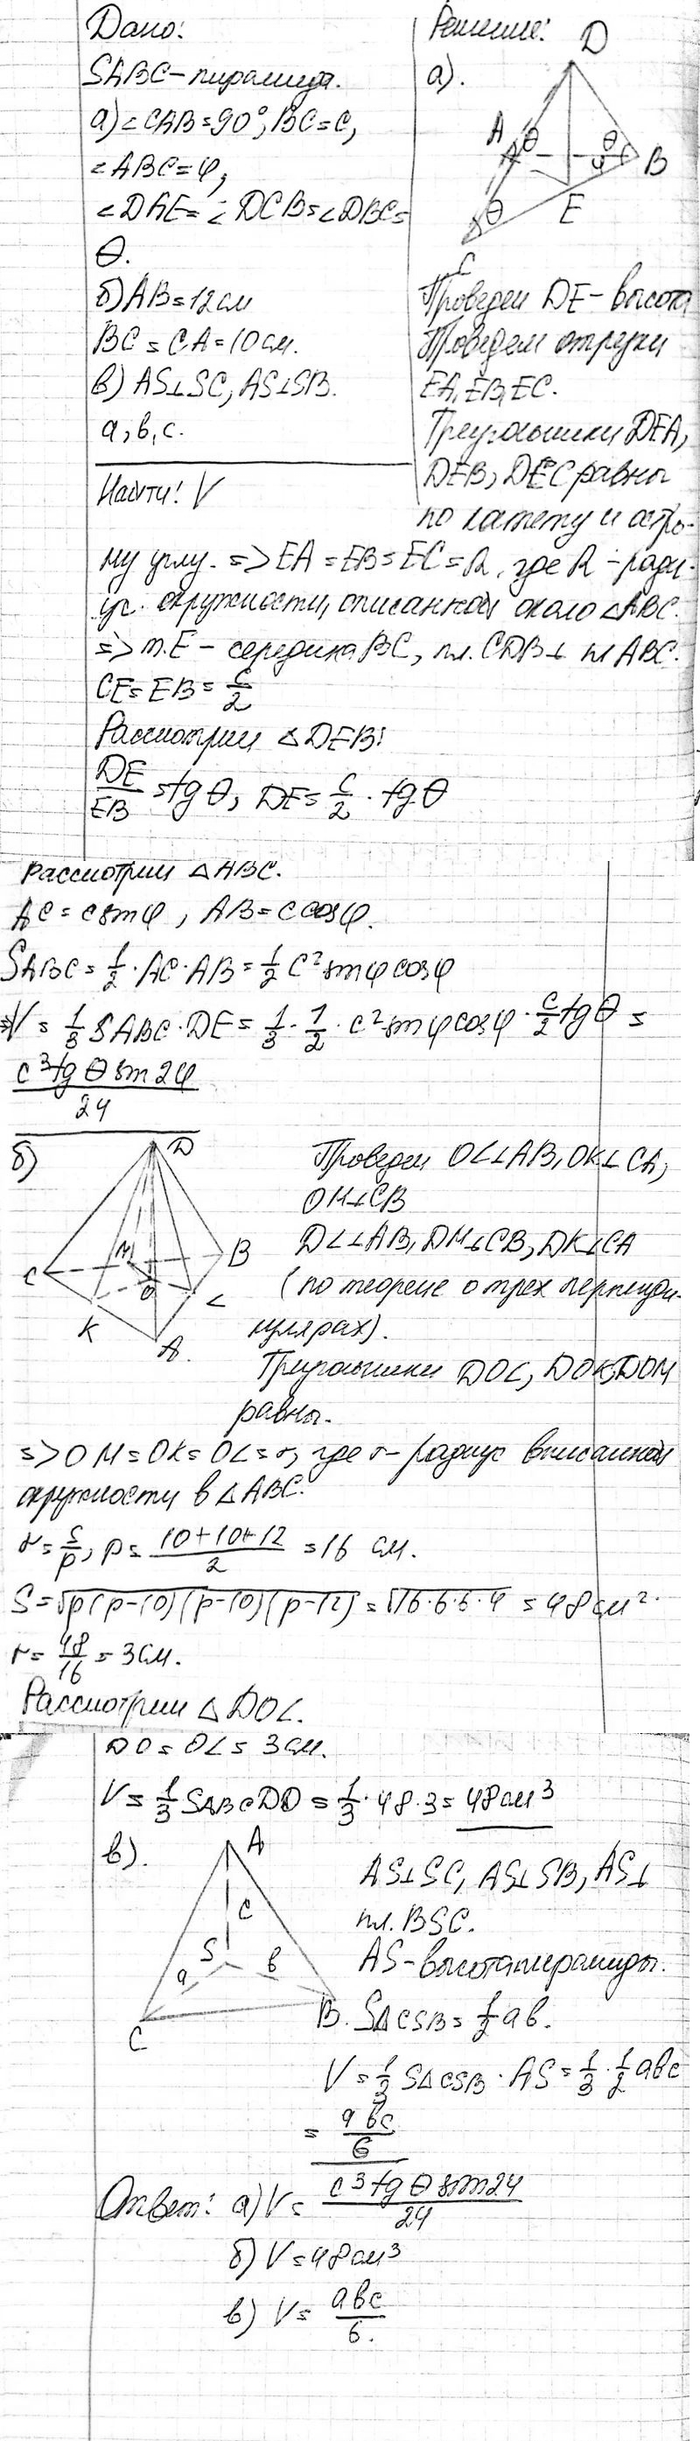 Дано:
SABC – пирамида.
а) ∠CAB = 90°, BC = c,
∠ABC = φ,
∠DAE = ∠DCB = ∠DBC =
θ.
б) AB = 12 см
BC = CA = 10 см.
в) AS⊥SC, AS⊥SB.
a, b, c.
Найти: V
Решение:
а).
D
A
θ
θ
φ
B
θ
E
C
Проведем DE – высота
Проведем отрезки
EA, EB, EC.
Треугольники DEA,
DEB, DEC равны
по катету и остро-
му углу. => EA = EB = EC = R, где R – ради-
ус окружности, описанной около △ABC.
=> т. E – середина BC, пл. CDB ⊥ пл ABC.
CE = EB = c/2
Рассмотрим △DEB:
DE/EB = tg θ, DE = c/2 · tg θ
Рассмотрим △ABC.
AC = c sin φ, AB = c cos φ.
SABC = 1/2 · AC · AB = 1/2 c² sin φ cos φ
=> V = 1/3 SABC · DE = 1/3 · 1/2 · c² sin φ cos φ · c/2 tg θ =
c³ tg θ sin 2φ / 24
б)
D
M
B
C
O
L
K
A
Проведем OL⊥AB, OK⊥CA,
OM⊥CB
DL⊥AB, DM⊥CB, DK⊥CA
(по теореме о трех перпенди-
кулярах).
Треугольники DOL, DOK, DOM
равны.
=> OM = OK = OL = r, где r – радиус вписанной
окружности в △ABC.
r = S/p, p = (10+10+12)/2 = 16 см.
S = √p(p-10)(p-10)(p-12) = √16·6·6·4 = 48 см²
r = 48/16 = 3 см.
Рассмотрим △DOL.
DO = OL = 3 см.
V = 1/3 SABC DO = 1/3 · 48 · 3 = 48 см³
в).
A
c
S
a
b
C
B.
AS⊥SC, AS⊥SB, AS⊥
пл. BSC.
AS – высота пирамиды.
S△CSB = 1/2 ab.
V = 1/3 S△CSB · AS = 1/3 · 1/2 abc
= abc/6
Ответ: а) V = c³ tg θ sin 2φ / 24
б) V = 48 см³
в) V = abc/6.